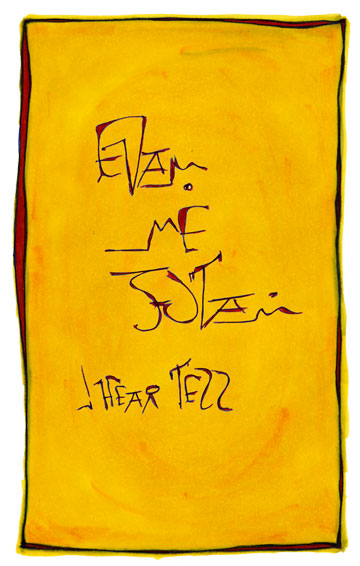 EVAṂ
ME
SUTAṂ
I HEAR TELL